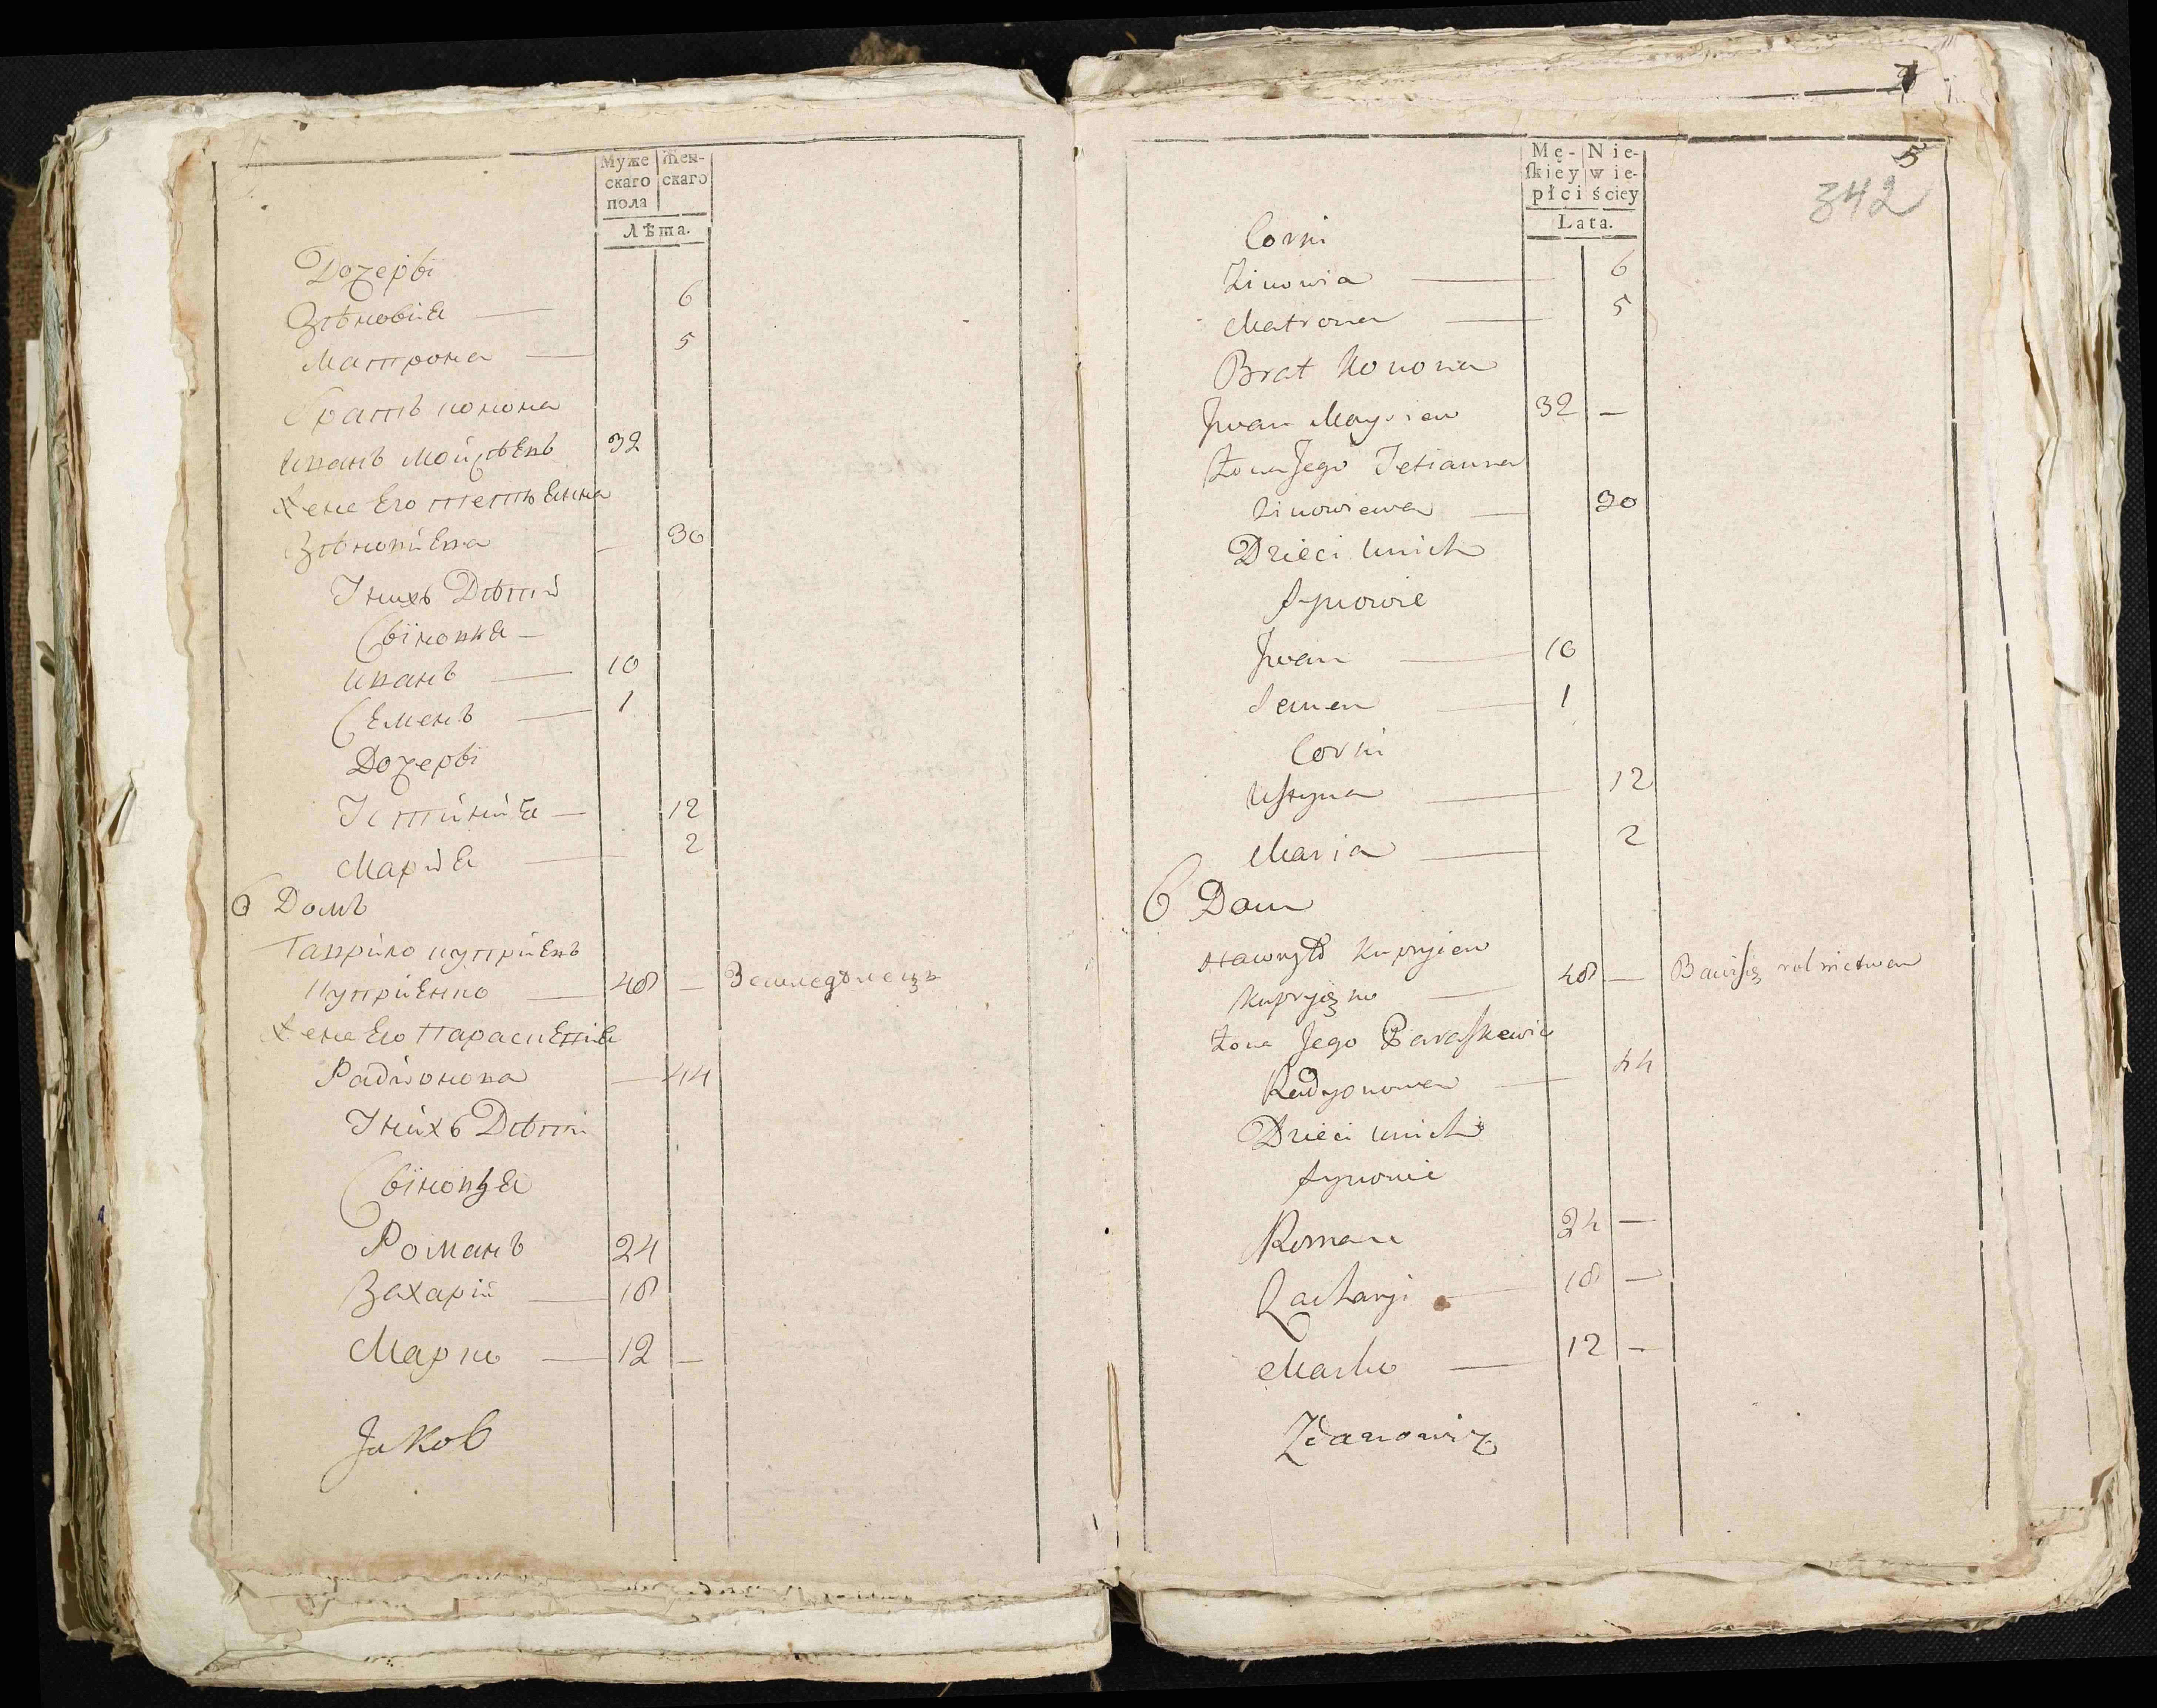 Муже
скаго
пола
Жен-
скаго
Лѣта.
Дочери
Зѣновiя — 6
Матрона — 5
Братъ конона
Иванъ Мойсѣевъ 32
Жена Его тетѣянна
Зѣновиева — 30
Iнихъ Дѣтiй
Сыновья —
Иванъ — 10
Семенъ — 1
Дочери
Iстинийя — 12
Мария — 2
6 Домъ
Гаврило куприевъ
Куприенко — 48 — Земледѣлецъ
Жена Его Параскевiя
Радионова — 44
Iнихъ Дѣти
Сыновья
Романъ 24
Захарiй — 18
Марко — 12 —
Jakob
Mę-
skiey
płci
Nie-
wie-
ściey
Lata.
5
342
Corki
Zinowia — 6
Matrona — 5
Brat Konona
Jwan Moysiew 32 —
Zona Jego Tetianna
Zinowiewa — 30
Dzieci Unich
Synowie
Jwan — 10
Semen — 1
Corki
Ustyna — 12
Maria — 2
6 Dom
Hawryło Kupryiew
Kupryięko — 48 — Bawi się rolnictwem
Zona Jego Paraskewia
Radyonowa — 44
Dzieci Unich
Synowie
Roman 24 —
Zacharyi — 18 —
Marko — 12 —
Zdanowicz